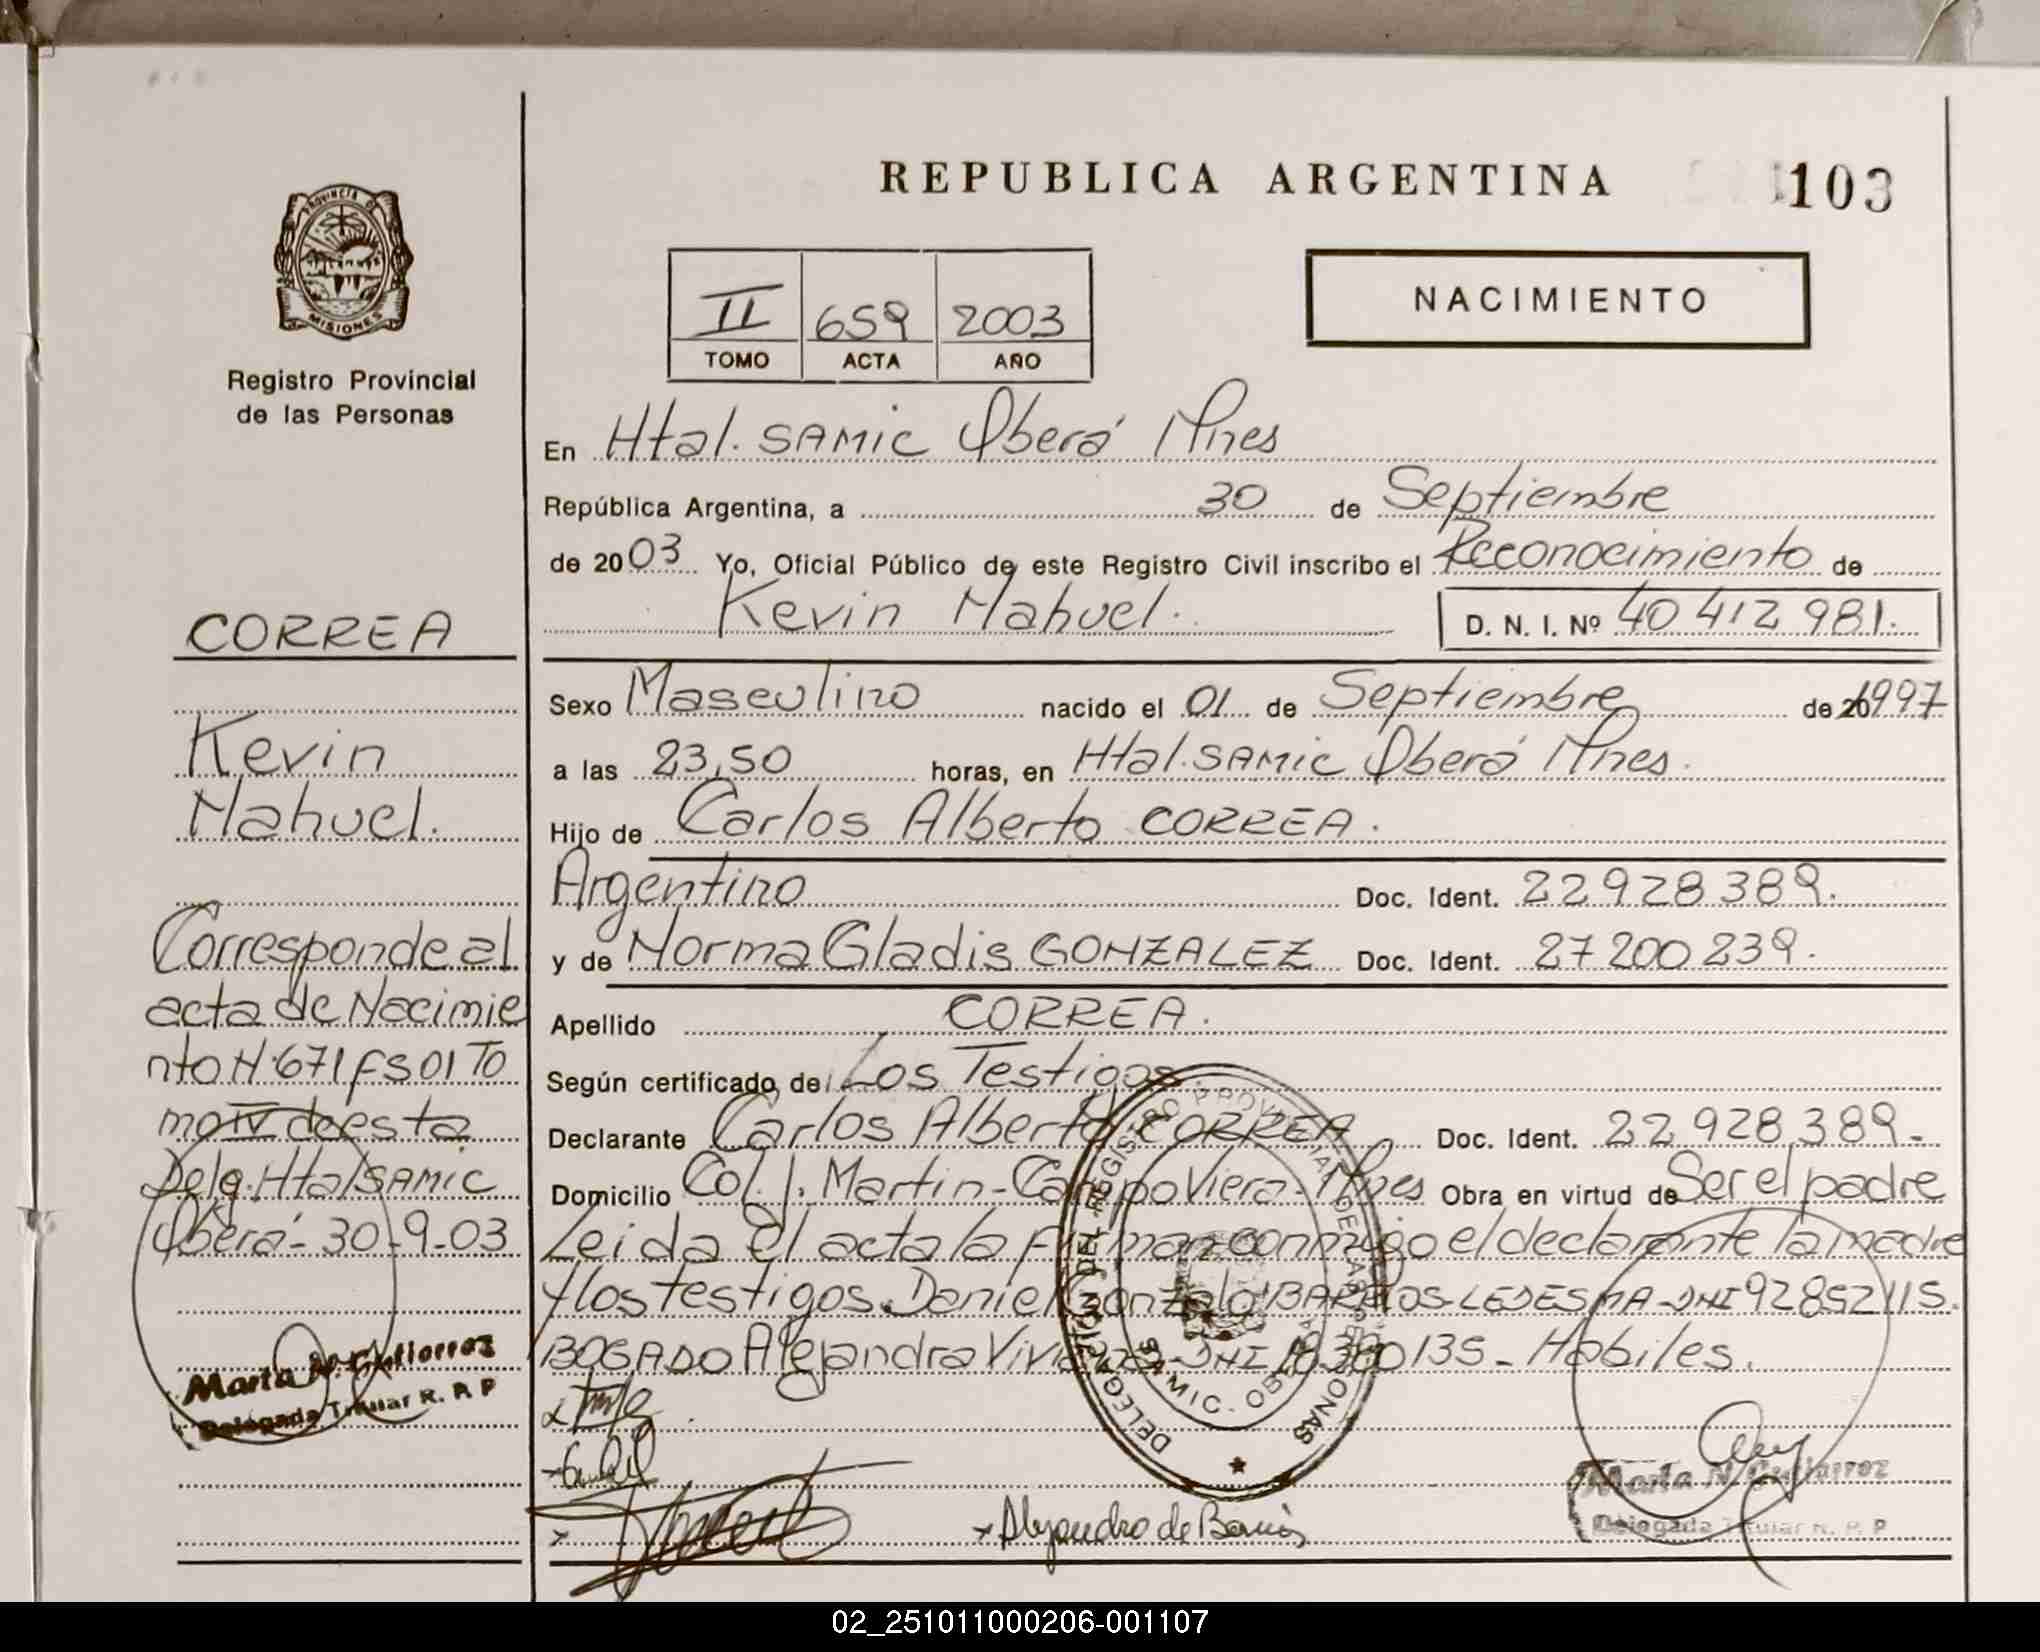 REPUBLICA ARGENTINA
103
PROVINCIA DE
MISIONES
Registro Provincial
de las Personas
II 659 2003
TOMO ACTA AÑO
NACIMIENTO
En Htal. SAMIC Oberá Mnes
República Argentina, a 30 de Septiembre
de 2003 Yo, Oficial Público de este Registro Civil inscribo el Reconocimiento de
Kevin Nahuel. D. N. I. Nº 40 412 981.
Sexo Masculino nacido el 01 de Septiembre de 1997
a las 23,50 horas, en Htal. SAMIC Oberá Mnes.
Hijo de Carlos Alberto CORREA.
Argentino Doc. Ident. 22 928 389.
y de Norma Gladis GONZALEZ Doc. Ident. 27 200 239.
Apellido CORREA.
Según certificado de Los Testigos
Declarante Carlos Alberto CORREA Doc. Ident. 22 928 389.
Domicilio Col. J. Martin - Campo Viera - Mnes Obra en virtud de Ser el padre
Leida El acta la firman conmigo el declarante la madre
y los testigos. Daniel Gonzalo BARRIOS LEDESMA - DNI 92852115.
BOGADO Alejandra Viviana - DNI 18380135 - Habiles.
CORREA
Kevin
Nahuel.
Corresponde al
acta de Nacimie
nto N·671 FS 01 To
mo IV de esta
Delg. Htal SAMIC
Oberá - 30-9-03
Marta N. Gutierrez
Delegada Titular R. P. P
DELEGACION DEL REGISTRO PROVINCIAL DE LAS PERSONAS
SAMIC - OBERA
Marta N. Gutierrez
Delegada Titular R. P. P
02_251011000206-001107